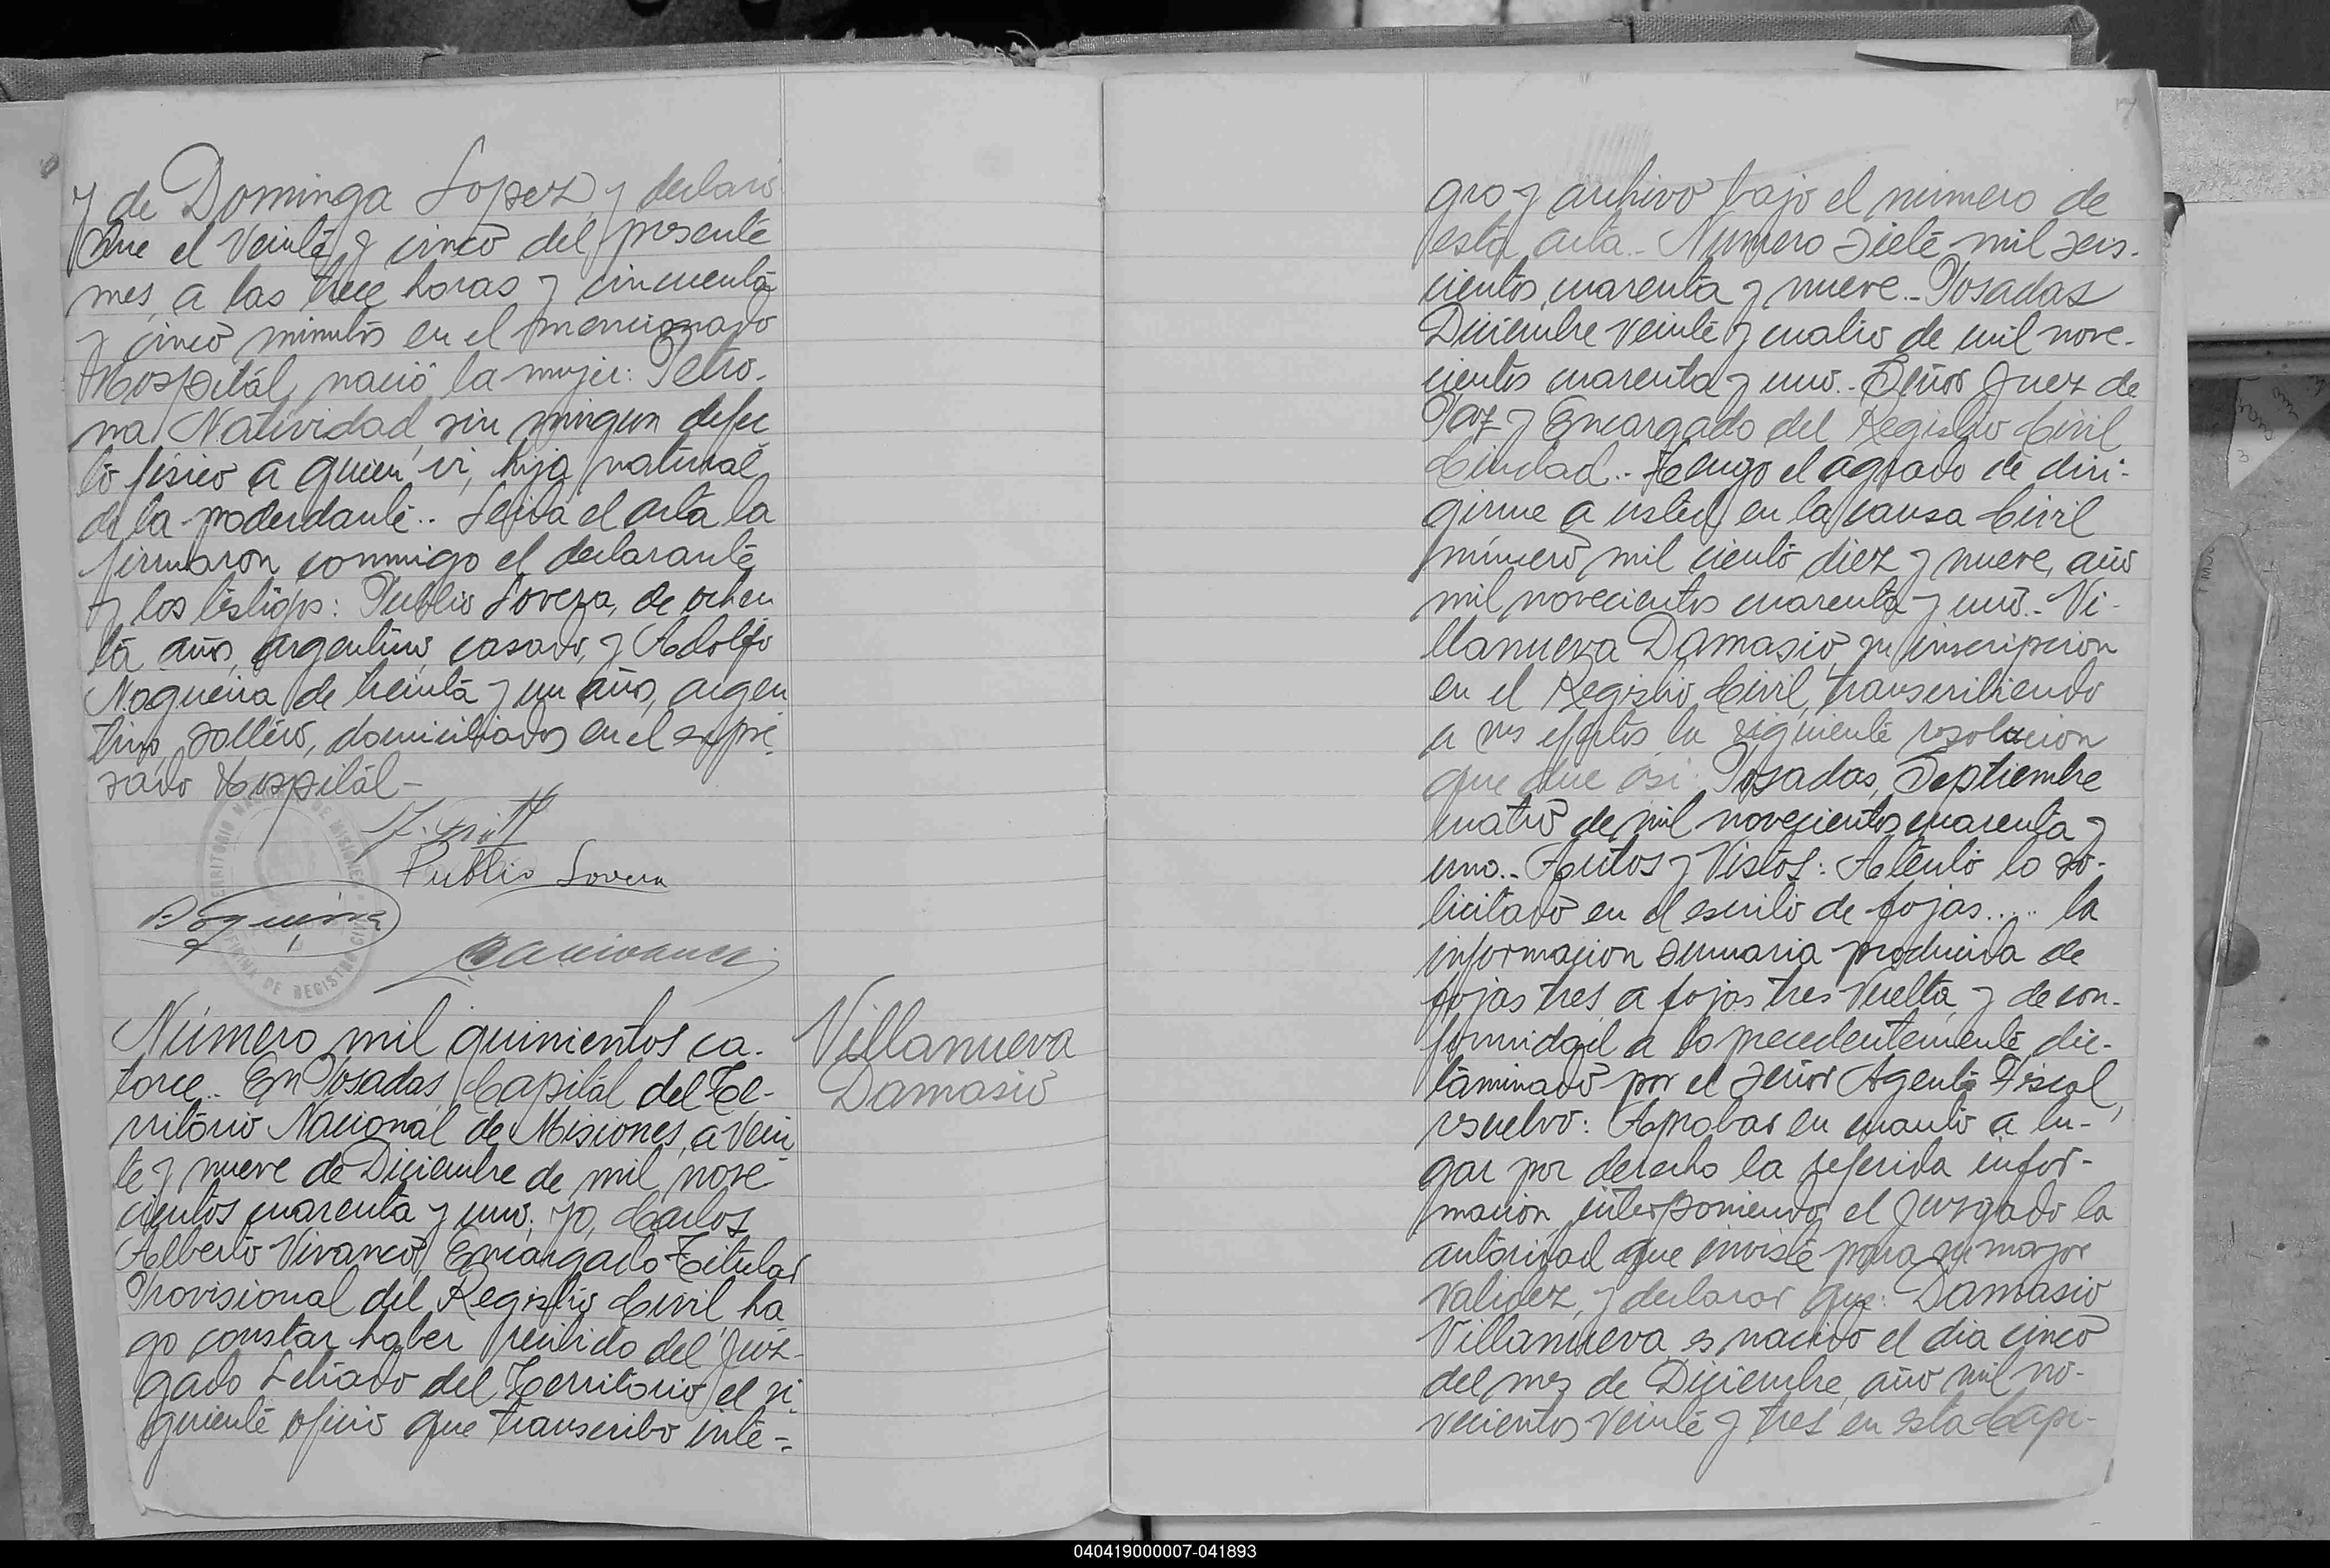 y de Dominga Lopez, y declaró
que el veinte y cinco del presente
mes, a las trece horas y cincuenta
y cinco minutos en el mencionado
Hospital, nació la mujer: Petro-
na Natividad, sin ningun defec
to fisico a quien ví, hija natural
de la poderdante.. Leida el acta la
firmaron conmigo el declarante
y los testigos: Publio Lovera, de ochen
ta años, argentino, casado, y Adolfo
Nogueira de treinta y un años, argen
tino, soltero, domiciliados en el expre-
sado Hospital-
Publio Lovera
Número mil quinientos ca-
torce.. En Posadas, Capital del Te-
rritorio Nacional de Misiones, a vein
te y nueve de Diciembre de mil nove-
cientos cuarenta y uno: yo, Carlos
Alberto Vivanco, Encargado Titular
Provisional del Registro Civil ha
go constar haber recibido del Juz-
gado Letrado del Territorio el si-
guiente oficio que transcribo inte-
Villanueva
Damasio
gro y archivo bajo el número de
esta acta.- Número siete mil seis-
cientos cuarenta y nueve.- Posadas
Diciembre veinte y cuatro de mil nove-
cientos cuarenta y uno.- Señor Juez de
Paz y Encargado del Registro Civil
Ciudad.- Tengo el agrado de diri-
girme a usted en la causa Civil
número mil ciento diez y nueve, año
mil novecientos cuarenta y uno.- Vi-
llanueva Damasio, su inscripcion
en el Registro Civil, transcribiendo
a sus efectos la siguiente resolucion
que dice asi: Posadas, Septiembre
cuatro de mil novecientos cuarenta y
uno.- Autos y Vistos: Atento lo so-
licitado en el escrito de fojas..... la
informacion sumaria producida de
fojas tres a fojas tres vuelta, y de con-
formidad a lo precedentemente dic-
taminado por el señor Agente Fiscal,
resuelvo: Aprobar en cuanto a lu-
gar por derecho la referida infor-
macion, interponiendo el Juzgado la
autoridad que inviste para su mayor
validez, y declarar que: Damasio
Villanueva es nacido el dia cinco
del mes de Diciembre, año mil no-
vecientos veinte y tres en esta Capi-
040419000007-041893